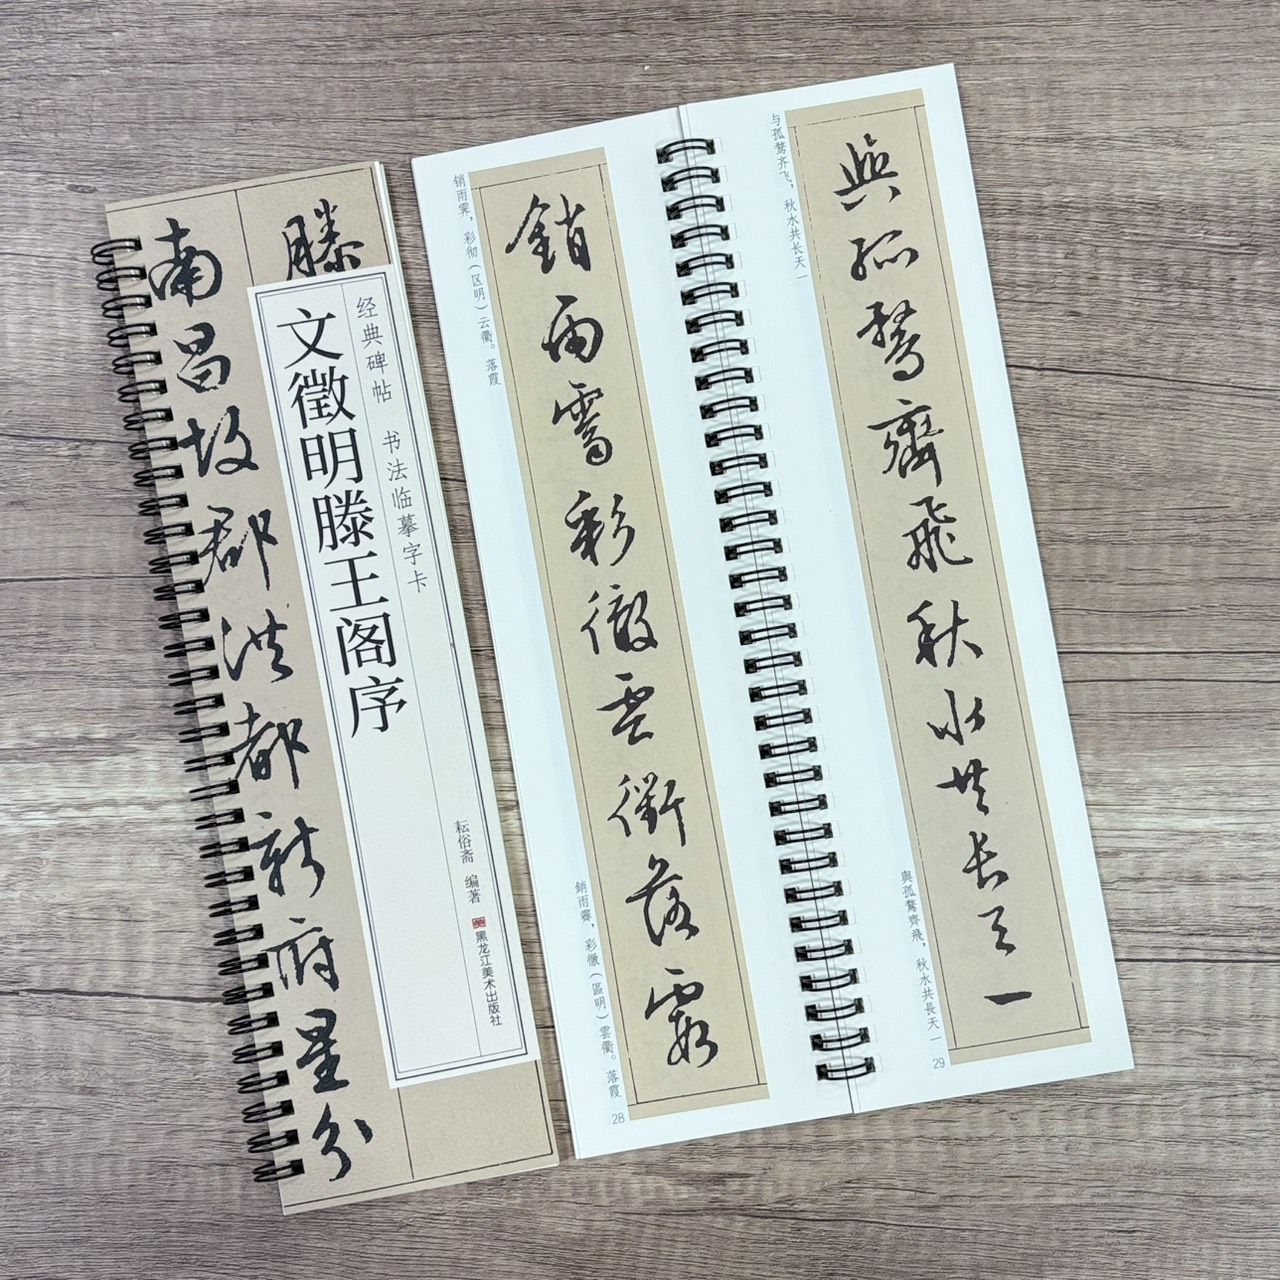 滕
南昌故郡洪都新府星分
经典碑帖 书法临摹字卡
文徵明滕王阁序
耘俗斋 编著
黑龙江美术出版社
销雨霁，彩彻（区明）云衢。落霞
銷雨霽彩徹雲衢落霞
銷雨霽，彩徹（區明）雲衢。落霞
28
与孤鹜齐飞，秋水共长天一
與孤鶩齊飛秋水共長天一
與孤鶩齊飛，秋水共長天一
29